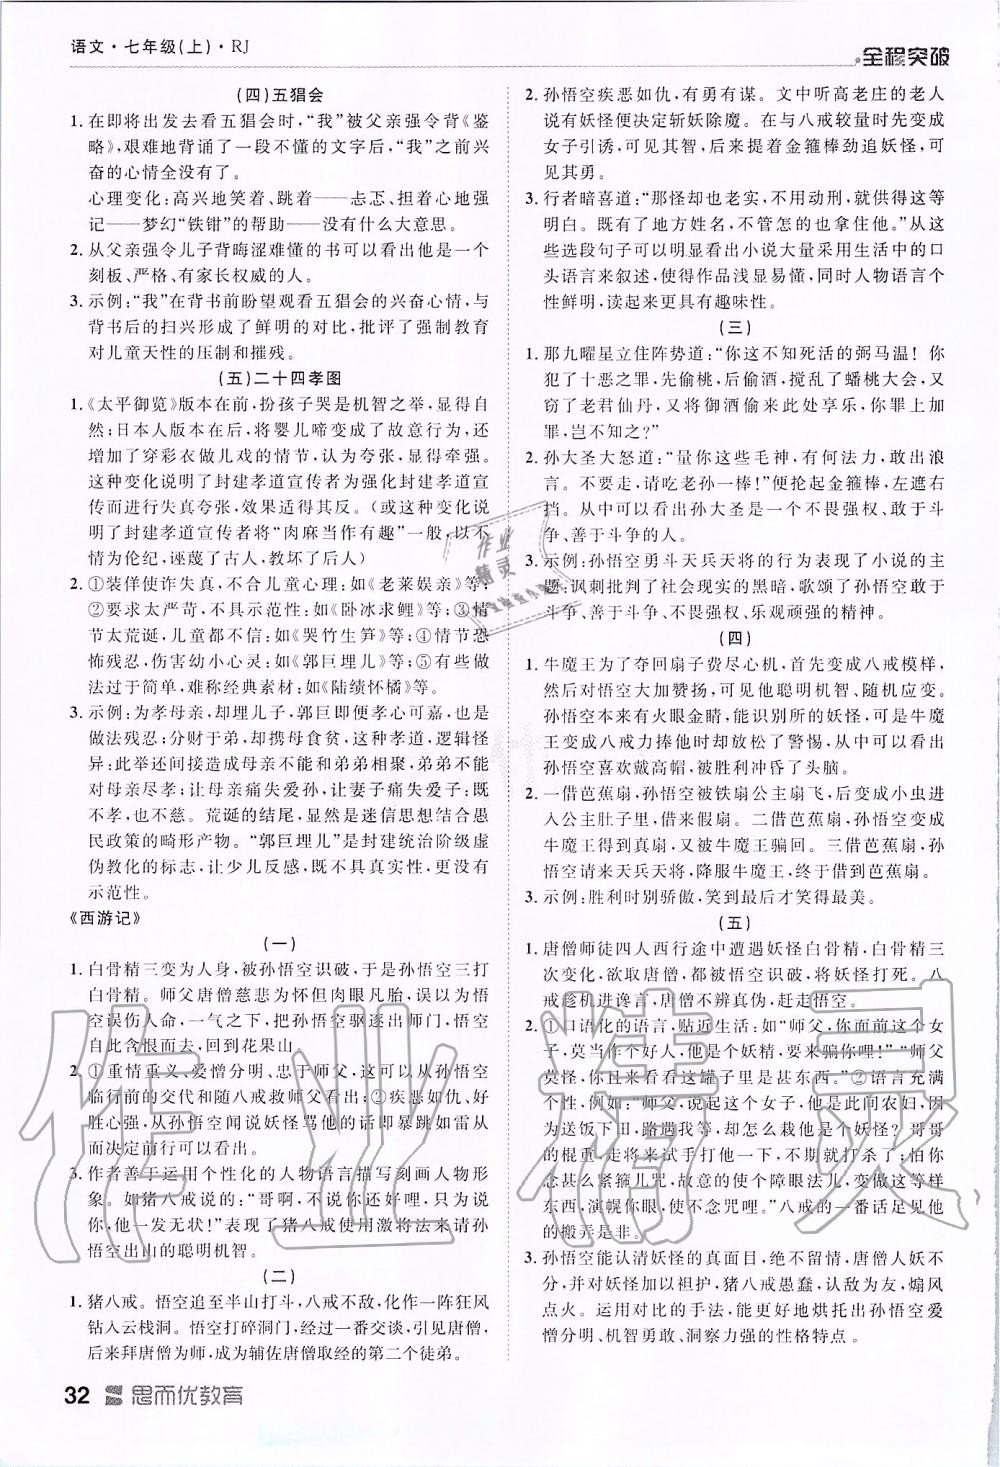 语文·七年级(上)·RJ
全程突破
(四)五猖会
1. 在即将出发去看五猖会时，“我”被父亲强令背《鉴
略》，艰难地背诵了一段不懂的文字后，“我”之前兴
奋的心情全没有了。
心理变化：高兴地笑着、跳着——忐忑、担着心地强
记——梦幻“铁钳”的帮助——没有什么大意思。
2. 从父亲强令儿子背晦涩难懂的书可以看出他是一个
刻板、严格、有家长权威的人。
3. 示例：“我”在背书前盼望观看五猖会的兴奋心情，与
背书后的扫兴形成了鲜明的对比，批评了强制教育
对儿童天性的压制和摧残。
(五)二十四孝图
1.《太平御览》版本在前，扮孩子哭是机智之举，显得自
然；日本人版本在后，将婴儿啼变成了故意行为，又
增加了穿彩衣做儿戏的情节，认为夸张，显得牵强。
这种变化说明了封建孝道宣传者为强化封建孝道宣传
而进行失真夸张，效果适得其反。（或这种变化说
明了封建孝道宣传者将“肉麻当作有趣”一般，以不
情为伦纪，诬蔑了古人，教坏了后人）
2. ①装佯使诈失真，不合儿童心理：如《老莱娱亲》等；
②要求太严苛，不具示范性：如《卧冰求鲤》等；③情
节太荒诞，儿童都不信：如《哭竹生笋》等；④情节恐
怖残忍，伤害幼小心灵：如《郭巨埋儿》等；⑤有些做
法过于简单，难称经典素材：如《陆绩怀橘》等。
3. 示例：为孝母亲，却埋儿子，郭巨即便孝心可嘉，也是
做法残忍；分财于弟，却携母食贫，这种孝道，逻辑怪
异：此举间接造成母亲不能和弟弟相聚，弟弟不能
对母亲尽孝；让母亲痛失爱孙，让妻子痛失爱子；既
不孝，也不慈。荒诞的结尾，是迷信思想结合愚
民政策的畸形产物。“郭巨埋儿”是封建统治阶级虚
伪教化的标志，让少儿反感，既不具真实性，更没有
示范性。
《西游记》
(一)
1. 白骨精三变为人身，被孙悟空识破，于是孙悟空三打
白骨精。师父唐僧慈悲为怀但肉眼凡胎，误以为悟
空误伤人命，一气之下，把孙悟空驱逐出师门，悟空
自此含恨而去，回到花果山。
2. ①重情重义、爱憎分明、忠于师父，这可以从孙悟空
临行前的交代和随八戒救师父看出；②疾恶如仇、好
胜心强，从孙悟空闻说妖怪骂他的话即暴跳如雷从
而决定前行可以看出。
3. 作者善于运用个性化的人物语言描写刻画人物形
象。如猪八戒说的：“哥啊，不说你还好哩，只为说你，
他一发无状！”表现了猪八戒使用激将法来请孙
悟空出山的聪明机智。
(二)
1. 猪八戒。悟空追至半山打斗，八戒不敌，化作一阵狂风
钻入云栈洞。悟空打碎洞门，经过一番交谈，引见唐僧，
后来拜唐僧为师，成为辅佐唐僧取经的第二个徒弟。
2. 孙悟空疾恶如仇，有勇有谋。文中听高老庄的老人
说有妖怪便决定斩妖除魔。在与八戒较量时先变成
女子引诱，可见其智，后来提着金箍棒劲追妖怪，可
见其勇。
3. 行者暗喜道：“那怪却也老实，不用动刑，就供得这等
明白。既有了地方姓名，不管怎的也拿住他。”从这
些选段句子可以明显看出小说大量采用生活中的口
头语言来叙述，使得作品浅显易懂，同时人物语言个
性鲜明，读起来更具有趣味性。
(三)
1. 那九曜星立住阵势道：“你这不知死活的弼马温！你
犯了十恶之罪，先偷桃，后偷酒，搅乱了蟠桃大会，又
窃了老君仙丹，又将御酒偷来此处享乐，你罪上加
罪，岂不知之？”
2. 孙大圣大怒道：“量你这些毛神，有何法力，敢出浪
言。不要走，请吃老孙一棒！”便抡起金箍棒，左遮右
挡。从中可以看出孙大圣是一个不畏强权、敢于斗
争、善于斗争的人。
3. 示例：孙悟空勇斗天兵天将的行为表现了小说的主
题：讽刺批判了社会现实的黑暗，歌颂了孙悟空敢于
斗争、善于斗争、不畏强权、乐观顽强的精神。
(四)
1. 牛魔王为了夺回扇子费尽心机，首先变成八戒模样，
然后对悟空大加赞扬，可见他聪明机智、随机应变。
孙悟空本来有火眼金睛，能识别所的妖怪，可是牛魔
王变成八戒力捧他时却放松了警惕，从中可以看出
孙悟空喜欢戴高帽，被胜利冲昏了头脑。
2. 一借芭蕉扇，孙悟空被铁扇公主扇飞，后变成小虫进
入公主肚子里，借来假扇。二借芭蕉扇，孙悟空变成
牛魔王得到真扇，又被牛魔王骗回。三借芭蕉扇，孙
悟空请来天兵天将，降服牛魔王，终于借到芭蕉扇。
3. 示例：胜利时别骄傲，笑到最后才笑得最美。
(五)
1. 唐僧师徒四人西行途中遭遇妖怪白骨精，白骨精三
次变化，欲取唐僧，都被悟空识破，将妖怪打死。八
戒趁机进谗言，唐僧不辨真伪，赶走悟空。
2. ①口语化的语言，贴近生活：如“师父，你面前这个女
子，莫当作个好人，他是个妖精，要来骗你哩！”“师父
莫怪，你且看看这罐子里是甚东西。”②语言充满
个性，例如：“师父，说起这个女子，他是此间农妇，因
为送饭下田，路遇我等，却怎么栽他是个妖怪？哥哥
的棍重，走将来试手打他一下，不期就打杀了；怕你念
甚么紧箍儿咒，故意的使个障眼法儿，变做这等样
东西，演幌你眼，使不念咒哩。”八戒的一番话足见他
的搬弄是非。
3. 孙悟空能认清妖怪的真面目，绝不留情，唐僧人妖不
分，并对妖怪加以袒护，猪八戒愚蠢，认敌为友，煽风
点火。运用对比的手法，能更好地烘托出孙悟空爱
憎分明、机智勇敢、洞察力强的性格特点。
作业精灵
32 思而优教育